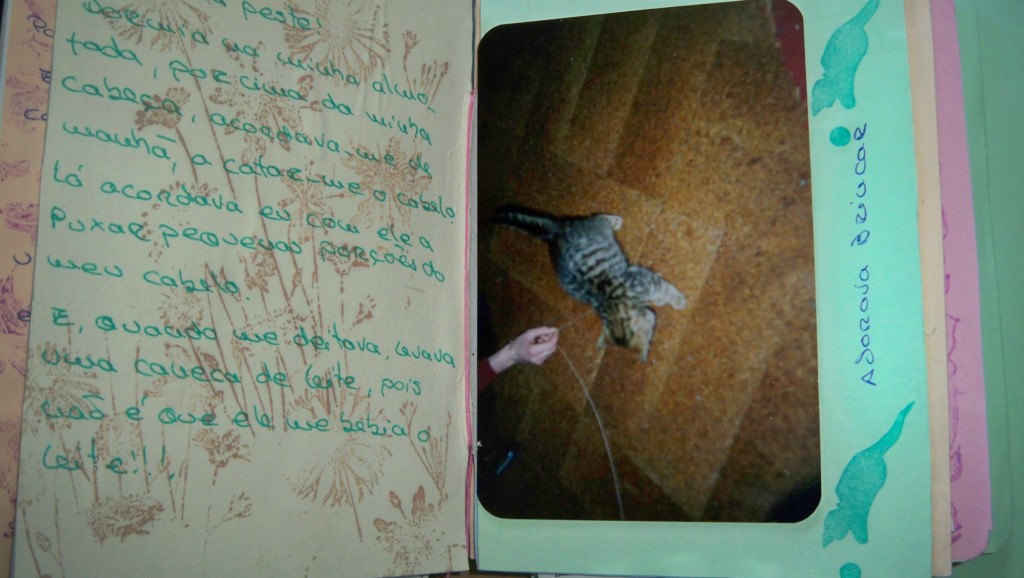 peste!
Dormia na minha almo-
fada, por cima da minha
cabeça, acordava-me de
manhã, a catar-me o cabelo!
Lá acordava eu com ele a
puxar pequenas porções do
meu cabelo.
E, quando me deitava, levava
uma caneca de leite, pois
não é que ele me bebia o
leite!!!
Adorava Brincar